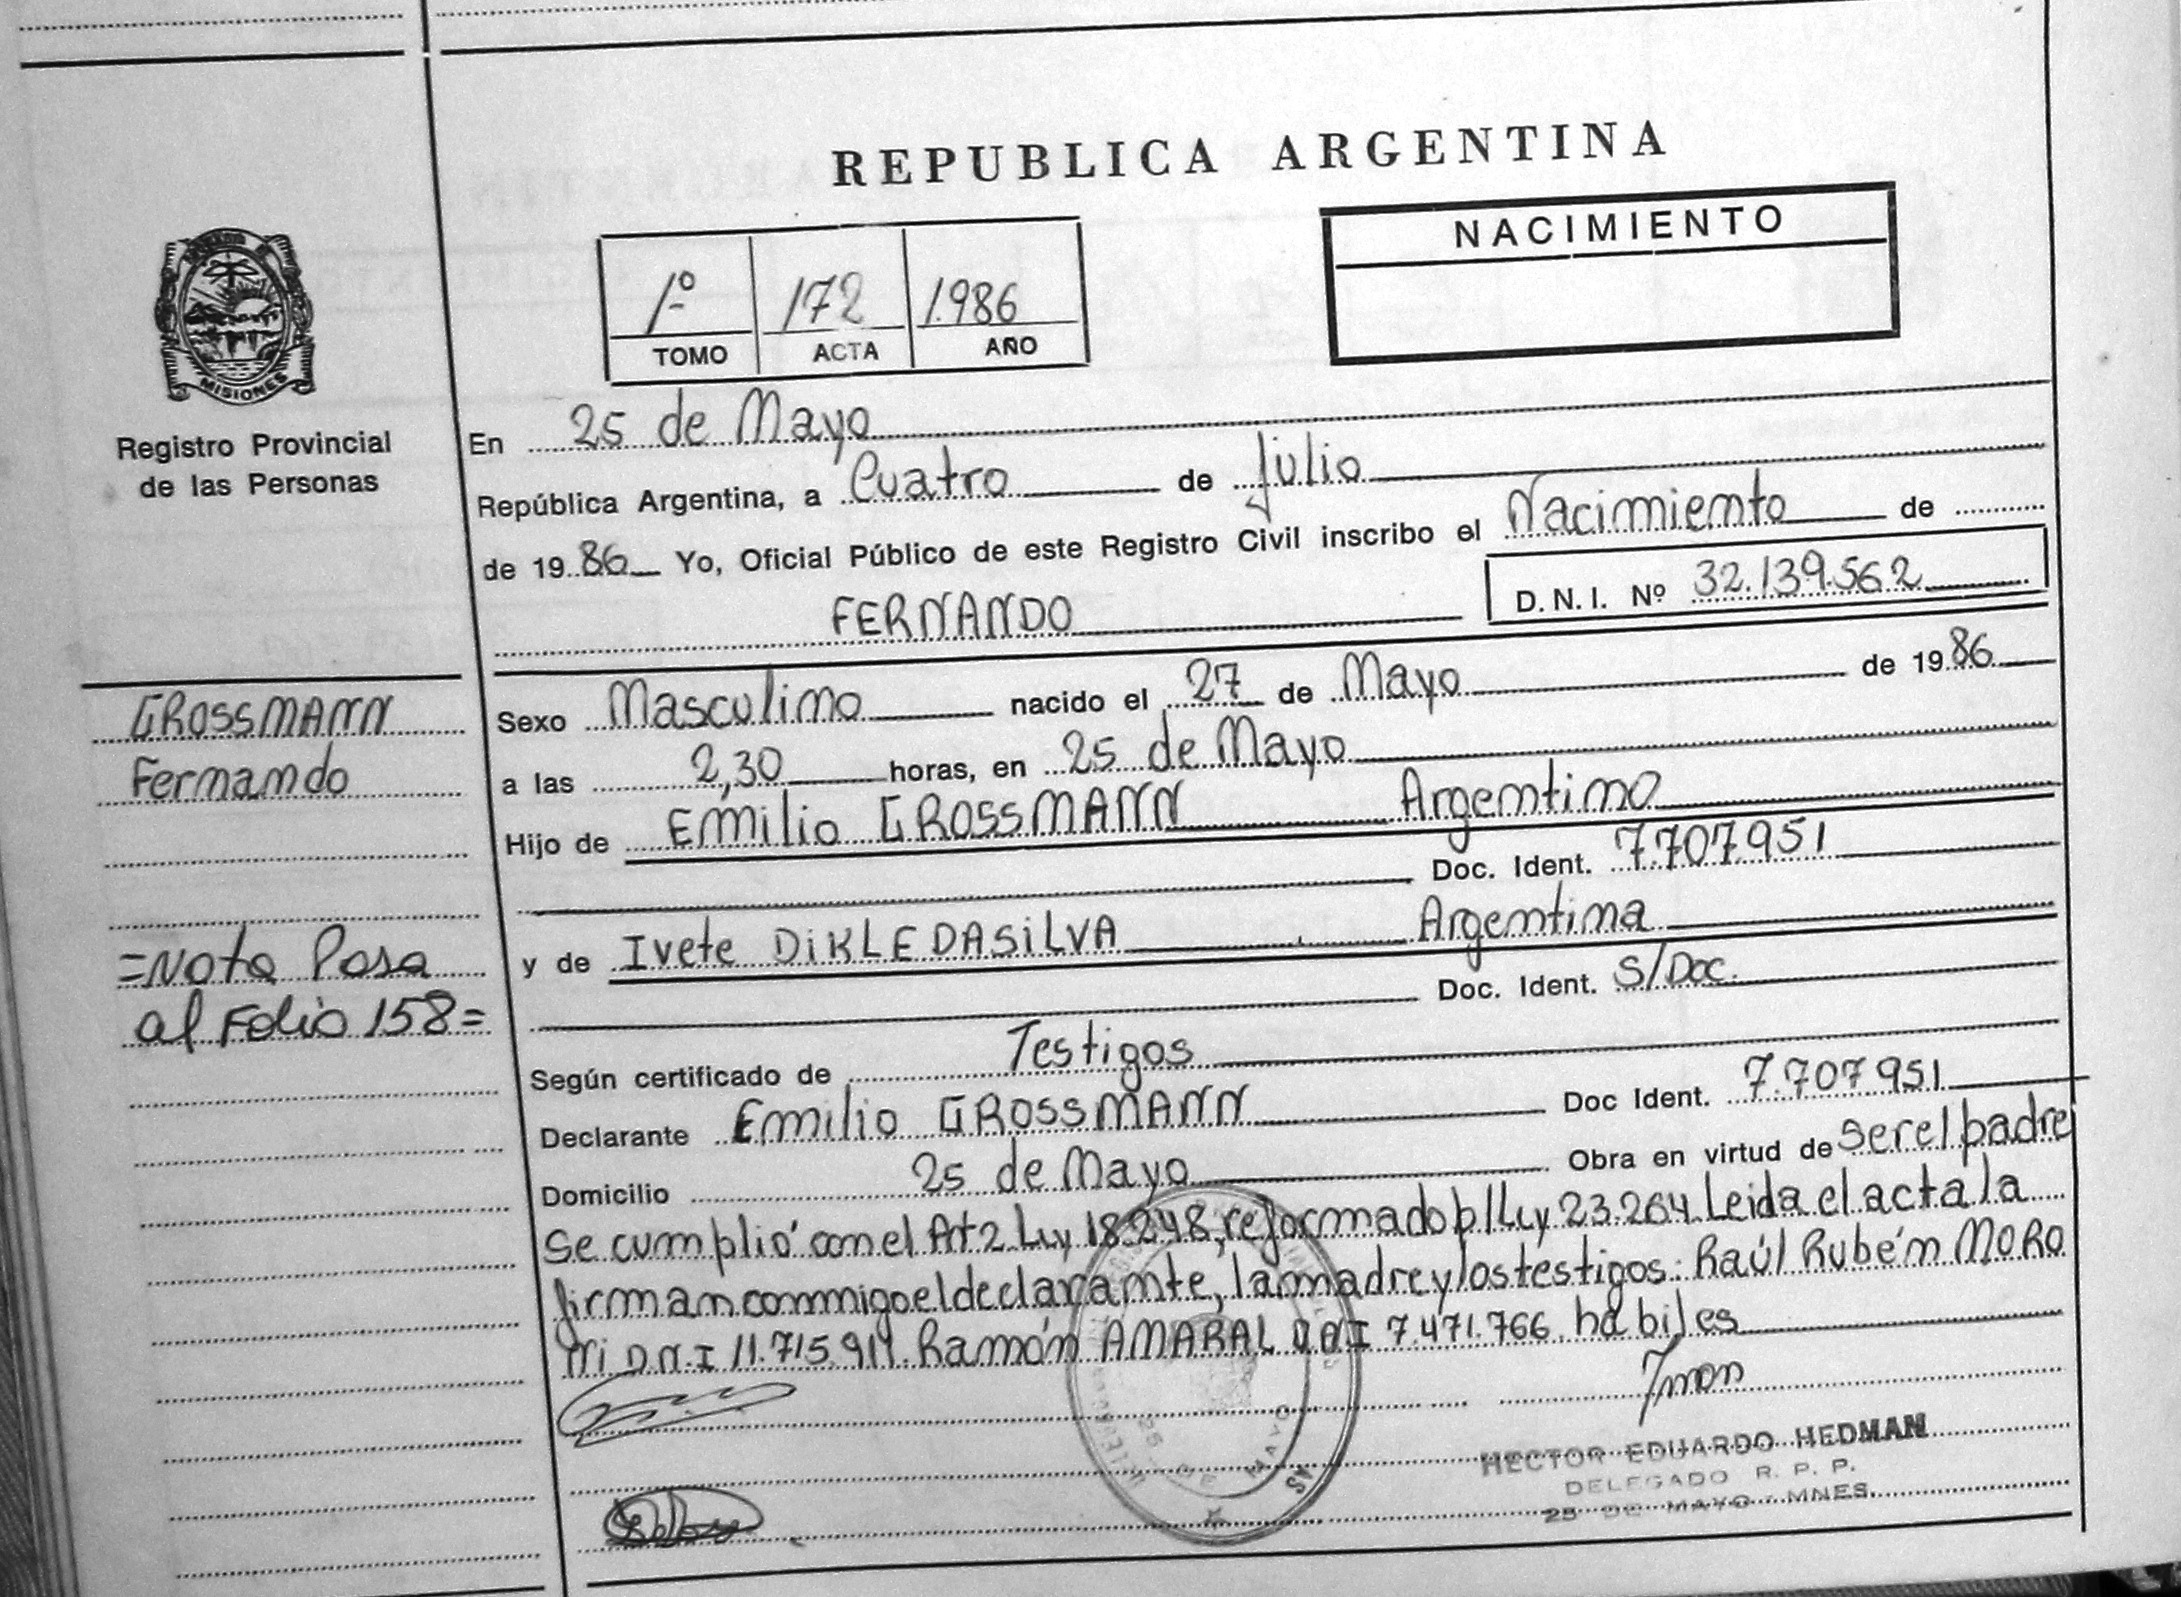 REPUBLICA ARGENTINA
NACIMIENTO
1º 172 1.986
TOMO ACTA AÑO
MISIONES
Registro Provincial
de las Personas
En 25 de Mayo
República Argentina, a Cuatro de julio
de 1986 Yo, Oficial Público de este Registro Civil inscribo el Nacimiento de
FERNANDO
D.N.I. Nº 32.139.562
GROSSMANN
Fernando
Sexo Masculino nacido el 27 de Mayo de 1986
a las 2,30 horas, en 25 de Mayo
Hijo de Emilio GROSSMANN Argentino
Doc. Ident. 7.707.951
y de Ivete DIKLE DASILVA Argentina
Doc. Ident. S/Doc.
=Nota Pasa
al Folio 158=
Según certificado de Testigos
Declarante Emilio GROSSMANN Doc Ident. 7.707951
Domicilio 25 de Mayo Obra en virtud de ser el padre
Se cumplió con el Art 2 Ley 18.248, reformado p/Ley 23.264 Leida el acta la
firman conmigo el declarante, la madre y los testigos: Raúl Rubén MORO
D.N.I 11.715.911. Ramón AMARAL D.N.I 7.471.766. hábiles
HECTOR EDUARDO HEDMAN
DELEGADO R. P. P.
25 DE MAYO - MNES.
25 DE MAYO